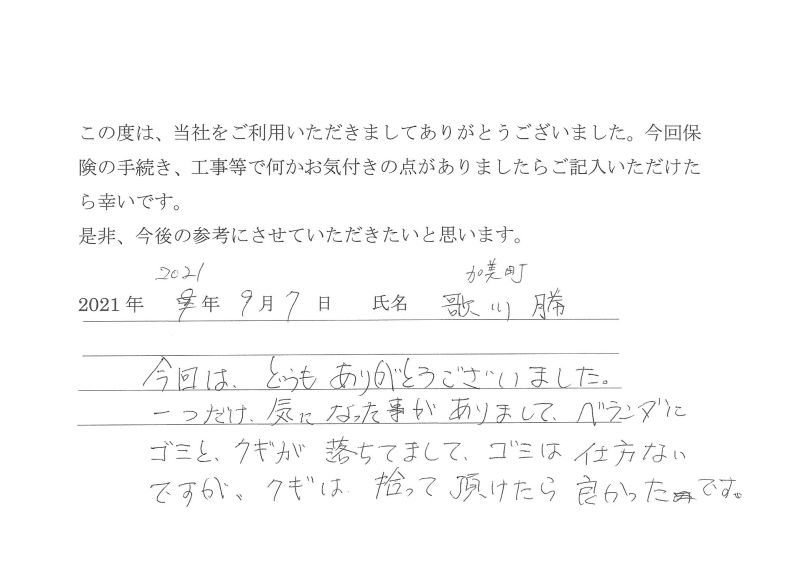 この度は、当社をご利用いただきましてありがとうございました。今回保
険の手続き、工事等で何かお気付きの点がありましたらご記入いただけた
ら幸いです。
是非、今後の参考にさせていただきたいと思います。
2021 加美町
2021年 年 9月7日 氏名 歌川 勝
今回は、どうもありがとうございました。
一つだけ、気になった事がありまして、ベランダに
ゴミと、クギが落ちてまして、ゴミは仕方ない
ですが、クギは拾って頂けたら良かったです。